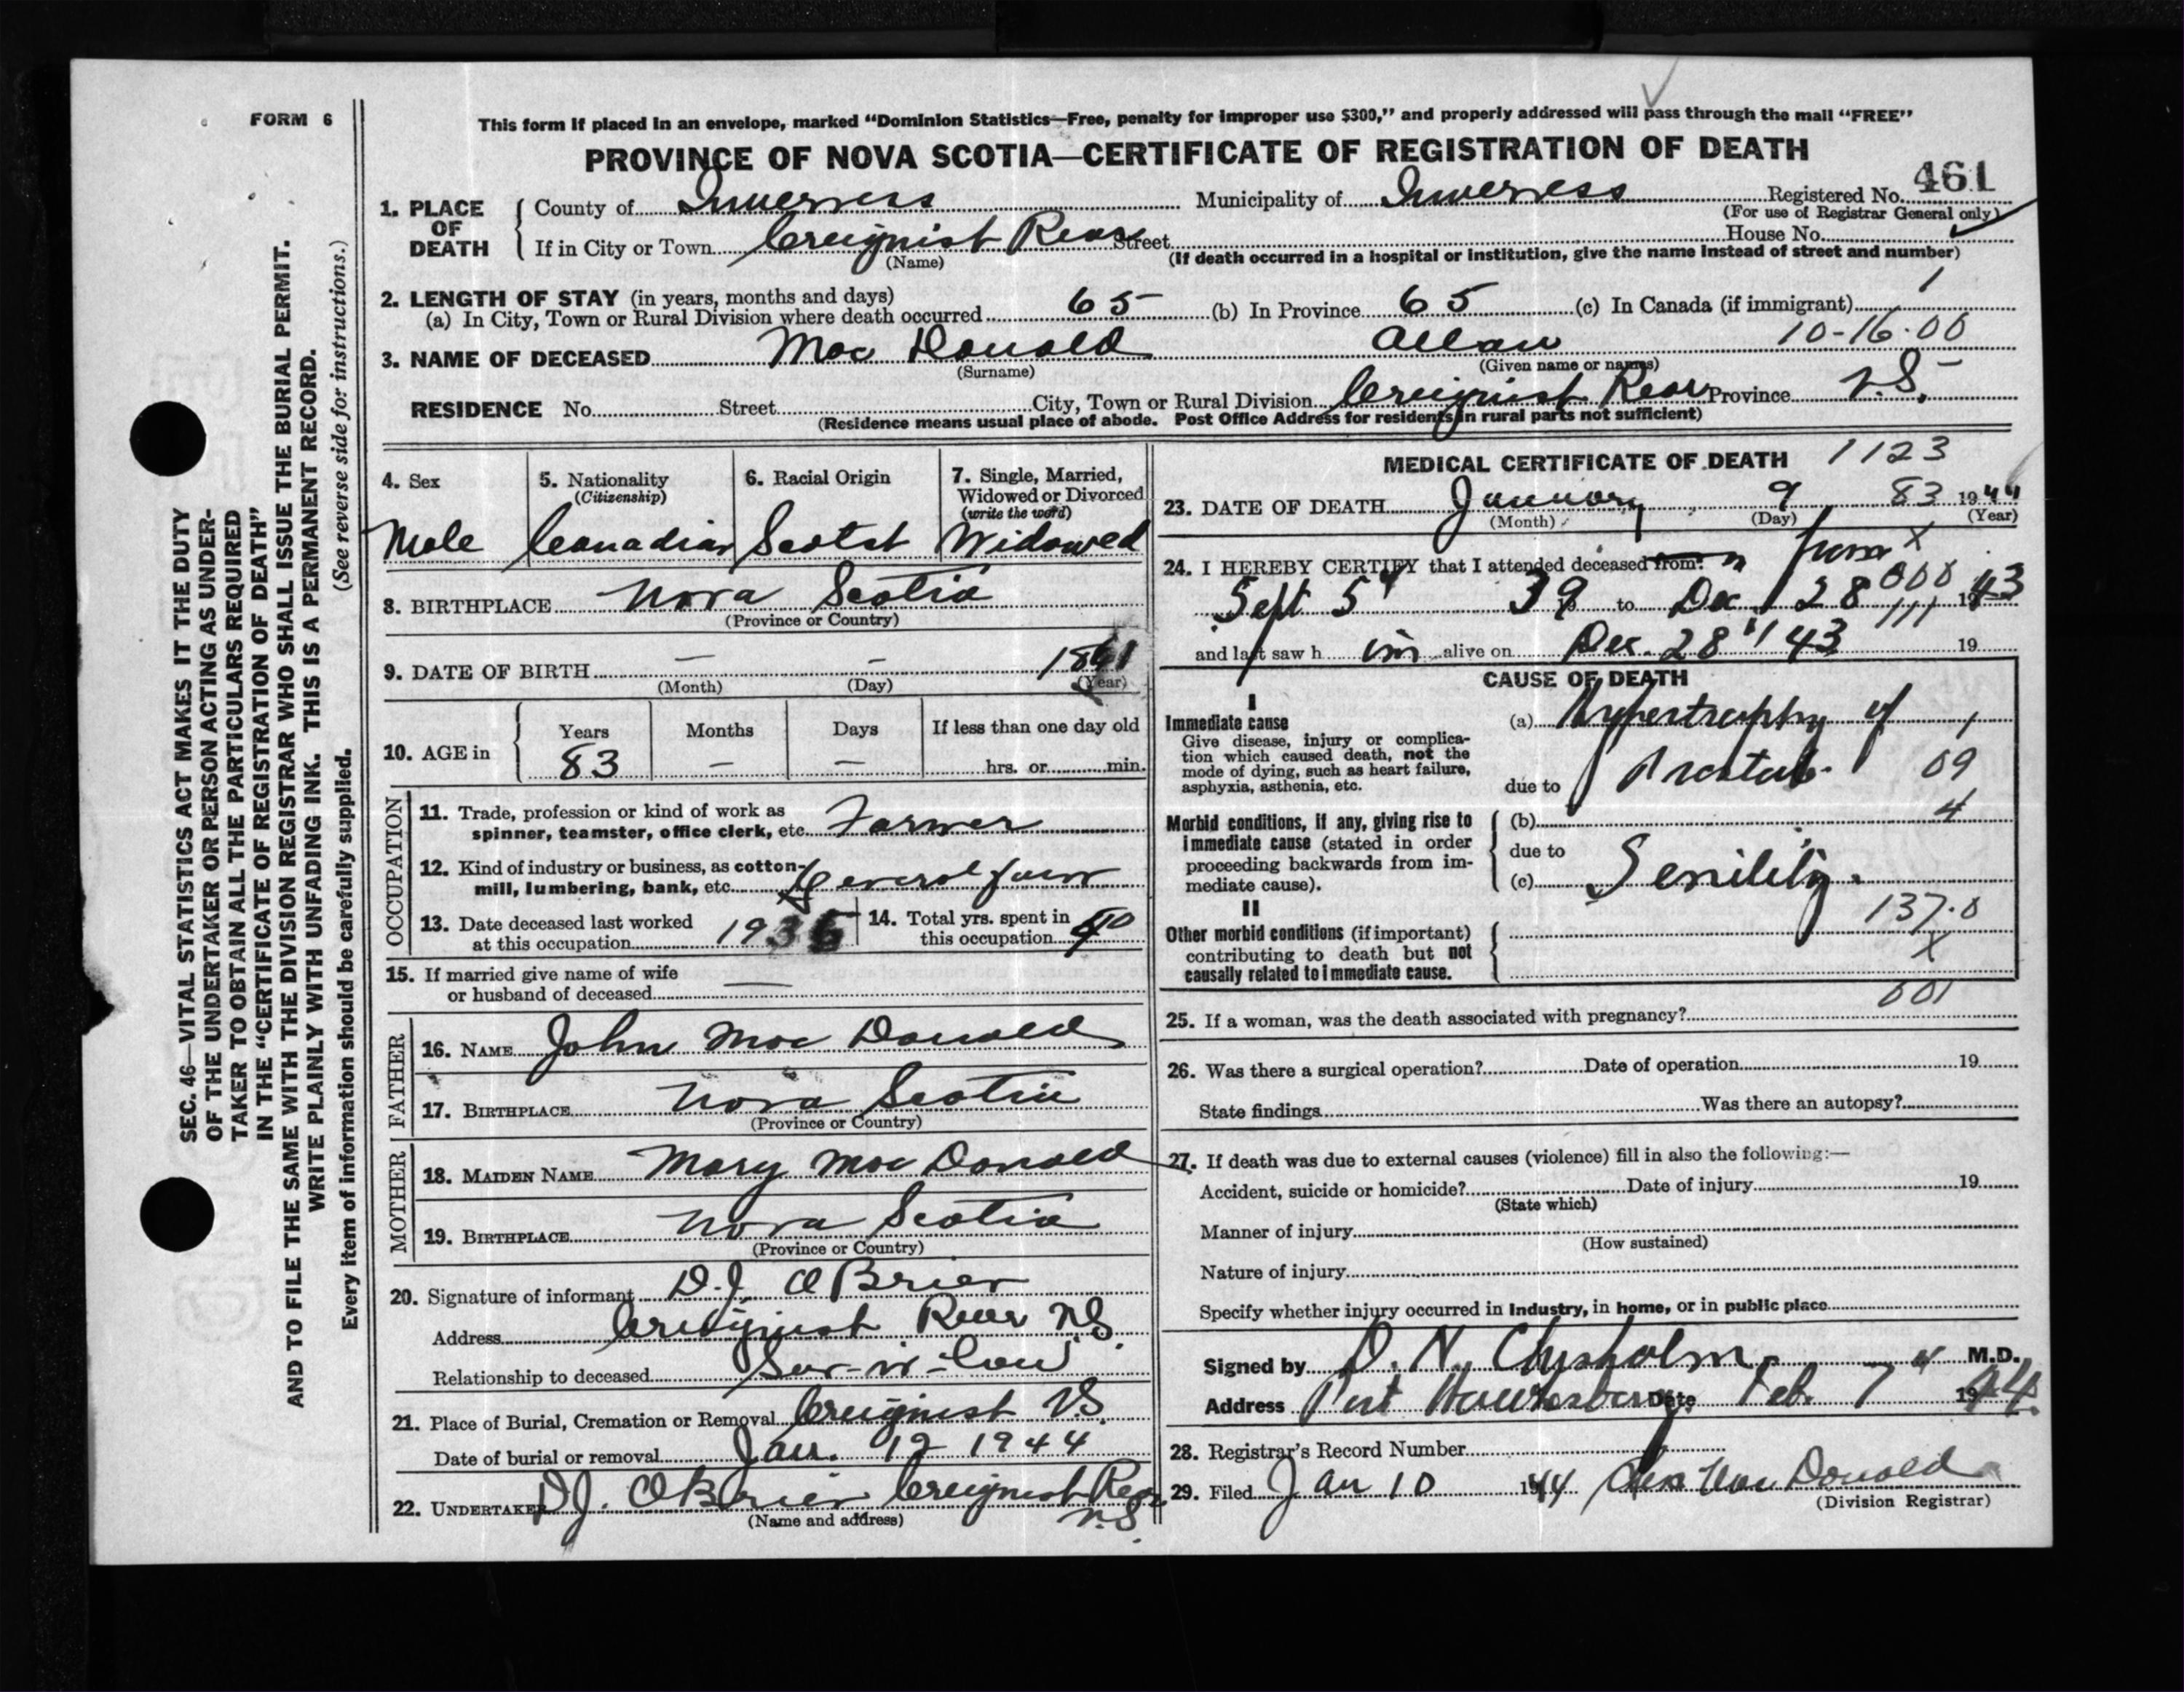 FORM 6
This form if placed in an envelope, marked “Dominion Statistics—Free, penalty for improper use $300,” and properly addressed will pass through the mail “FREE”
PROVINCE OF NOVA SCOTIA—CERTIFICATE OF REGISTRATION OF DEATH
461
1. PLACE OF DEATH
County of Inverness Municipality of Inverness Registered No.
(For use of Registrar General only)
If in City or Town Creignist Rear Street House No.
(Name) (If death occurred in a hospital or institution, give the name instead of street and number)
2. LENGTH OF STAY (in years, months and days)
(a) In City, Town or Rural Division where death occurred 65 (b) In Province 65 (c) In Canada (if immigrant) 1
3. NAME OF DECEASED Mac Donald Allan 10-16-00
(Surname) (Given name or names)
RESIDENCE No. Street City, Town or Rural Division Creignist Rear Province N.S.
(Residence means usual place of abode. Post Office Address for residents in rural parts not sufficient)
4. Sex
Male
5. Nationality
(Citizenship)
Canadian
6. Racial Origin
Scotch
7. Single, Married,
Widowed or Divorced
(write the word)
Widowed
8. BIRTHPLACE Nova Scotia
(Province or Country)
9. DATE OF BIRTH — — 1861
(Month) (Day) (Year)
10. AGE in
Years Months Days If less than one day old
83 — — hrs. or min.
OCCUPATION
11. Trade, profession or kind of work as
spinner, teamster, office clerk, etc. Farmer
12. Kind of industry or business, as cotton-
mill, lumbering, bank, etc. General farm
13. Date deceased last worked
at this occupation 1936
14. Total yrs. spent in
this occupation 40
15. If married give name of wife
or husband of deceased —
FATHER
16. NAME John Mac Donald
17. BIRTHPLACE Nova Scotia
(Province or Country)
MOTHER
18. MAIDEN NAME Mary Mac Donald
19. BIRTHPLACE Nova Scotia
(Province or Country)
20. Signature of informant D.J. O Brien
Address Creignist Rear N.S.
Relationship to deceased Son-in-law
21. Place of Burial, Cremation or Removal Creignist N.S.
Date of burial or removal Jan. 12 1944
22. UNDERTAKER D.J. O Brien Creignist Rear
N.S.
(Name and address)
MEDICAL CERTIFICATE OF DEATH 1123
23. DATE OF DEATH January 9 83 1944
(Month) (Day) (Year)
24. I HEREBY CERTIFY that I attended deceased from: from X
Sept 5 39 to Dec 28 000 1943
111
and last saw h im alive on Dec. 28 43 19
CAUSE OF DEATH
I
Immediate cause
Give disease, injury or complica-
tion which caused death, not the
mode of dying, such as heart failure,
asphyxia, asthenia, etc.
(a) Hypertrophy of 1
due to Prostate 09
Morbid conditions, if any, giving rise to
immediate cause (stated in order
proceeding backwards from im-
mediate cause).
(b) 4
due to
(c) Senility.
137.0
II
Other morbid conditions (if important)
contributing to death but not
causally related to immediate cause.
X
001
25. If a woman, was the death associated with pregnancy?
26. Was there a surgical operation? Date of operation 19
State findings Was there an autopsy?
27. If death was due to external causes (violence) fill in also the following:—
Accident, suicide or homicide? Date of injury 19
(State which)
Manner of injury
(How sustained)
Nature of injury
Specify whether injury occurred in Industry, in home, or in public place
Signed by D. N. Chisholm M.D.
Address Port Hawkesbury Date Feb. 7 1944
28. Registrar's Record Number
29. Filed Jan 10 1944 Mac Donald
(Division Registrar)
SEC. 46—VITAL STATISTICS ACT MAKES IT THE DUTY
OF THE UNDERTAKER OR PERSON ACTING AS UNDER-
TAKER TO OBTAIN ALL THE PARTICULARS REQUIRED
IN THE “CERTIFICATE OF REGISTRATION OF DEATH”
AND TO FILE THE SAME WITH THE DIVISION REGISTRAR WHO SHALL ISSUE THE BURIAL PERMIT.
WRITE PLAINLY WITH UNFADING INK. THIS IS A PERMANENT RECORD.
Every item of information should be carefully supplied. (See reverse side for instructions.)